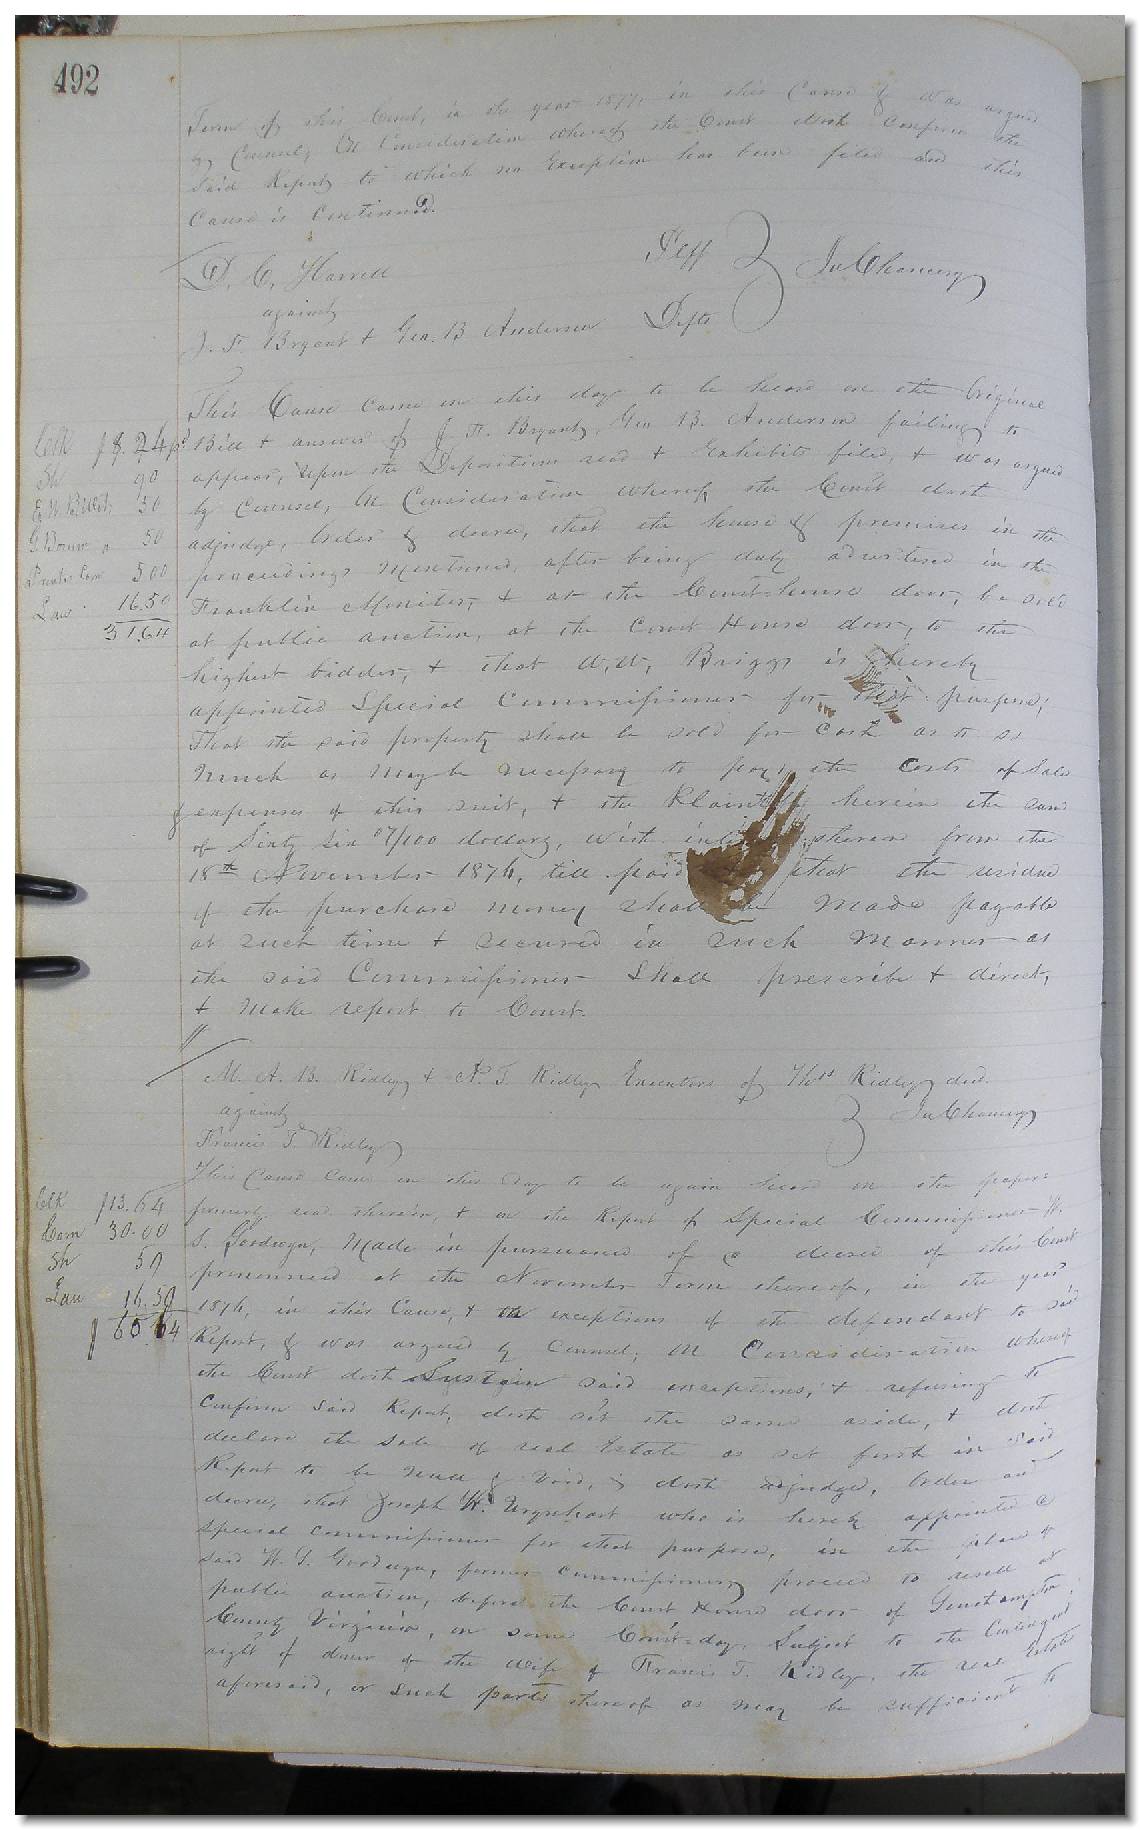 492
Term of this Court, in the year 1877, in this Cause & was argued
by Counsel, On Consideration whereof the Court doth Confirm the
said Report, to which no Exception has been filed and this
Cause is Continued.
D. C. Harrell Plff
against In Chancery
J. F. Bryant & Geo. B Anderson Defts
This Cause came on this day to be heard on the Original
Bill & answer of J. F. Bryant, Geo B. Anderson failing to
appear, upon the Depositions read & Exhibits filed, & was argued
by Counsel, On Consideration whereof, the Court doth
adjudge, Order & decree, that the house & premises in the
proceedings mentioned, after being duly advertised in the
Franklin Monitor, & at the Court-house door, be sold
at public auction, at the Court House door, to the
highest bidder, & that W. W. Briggs is hereby
appointed Special Commissioner for that purpose;
That the said property shall be sold for Cash as to so
Much as May be necessary to pay the Costs of Sale
& expenses of this suit, & the Plaintiff herein the sum
of Sixty six 07/100 dollars, with thereon from the
18th November 1874, till paid that the residue
of the purchase money shall be Made payable
at such time & secured in such Manner as
the said Commissioner Shall prescribe & direct,
& Make report to Court.
Clk $8.24
Sh 90
50
50
5 00
Law 16.50
31.64
M. A. B. Ridley & N. T. Ridley Executors of Thos Ridley decd.
against In Chancery
Francis T. Ridley
This Cause Came on this day to be again heard on the papers
formerly read therein, & on the Report of Special Commissioner W.
S. Goodwyn, Made in pursuance of a decree of this Court
pronounced at the November Term thereof, in the year
1876, in this Cause, & the exceptions of the defendant to said
Report, & was argued by Counsel; On Consideration whereof
the Court doth Sustain said exceptions, & refusing to
Confirm said Report, doth set the same aside, & doth
declare the sale of real Estate as set forth in said
Report to be Null & void, & doth adjudge, Order and
decree, that Joseph W. Urquhart who is hereby appointed a
special commissioner for that purpose, in the place of
said W. S. Goodwyn, former commissioner, proceed to resell at
public auction, before the Court House door of Southampton
County Virginia, on some Court-day, Subject to the Contingent
right of dower of the wife of Francis T. Ridley, the real Estate
aforesaid, or such parts thereof as may be sufficient to
Clk $13.64
Com 30.00
Sh 50
Law 16.50
$60.64